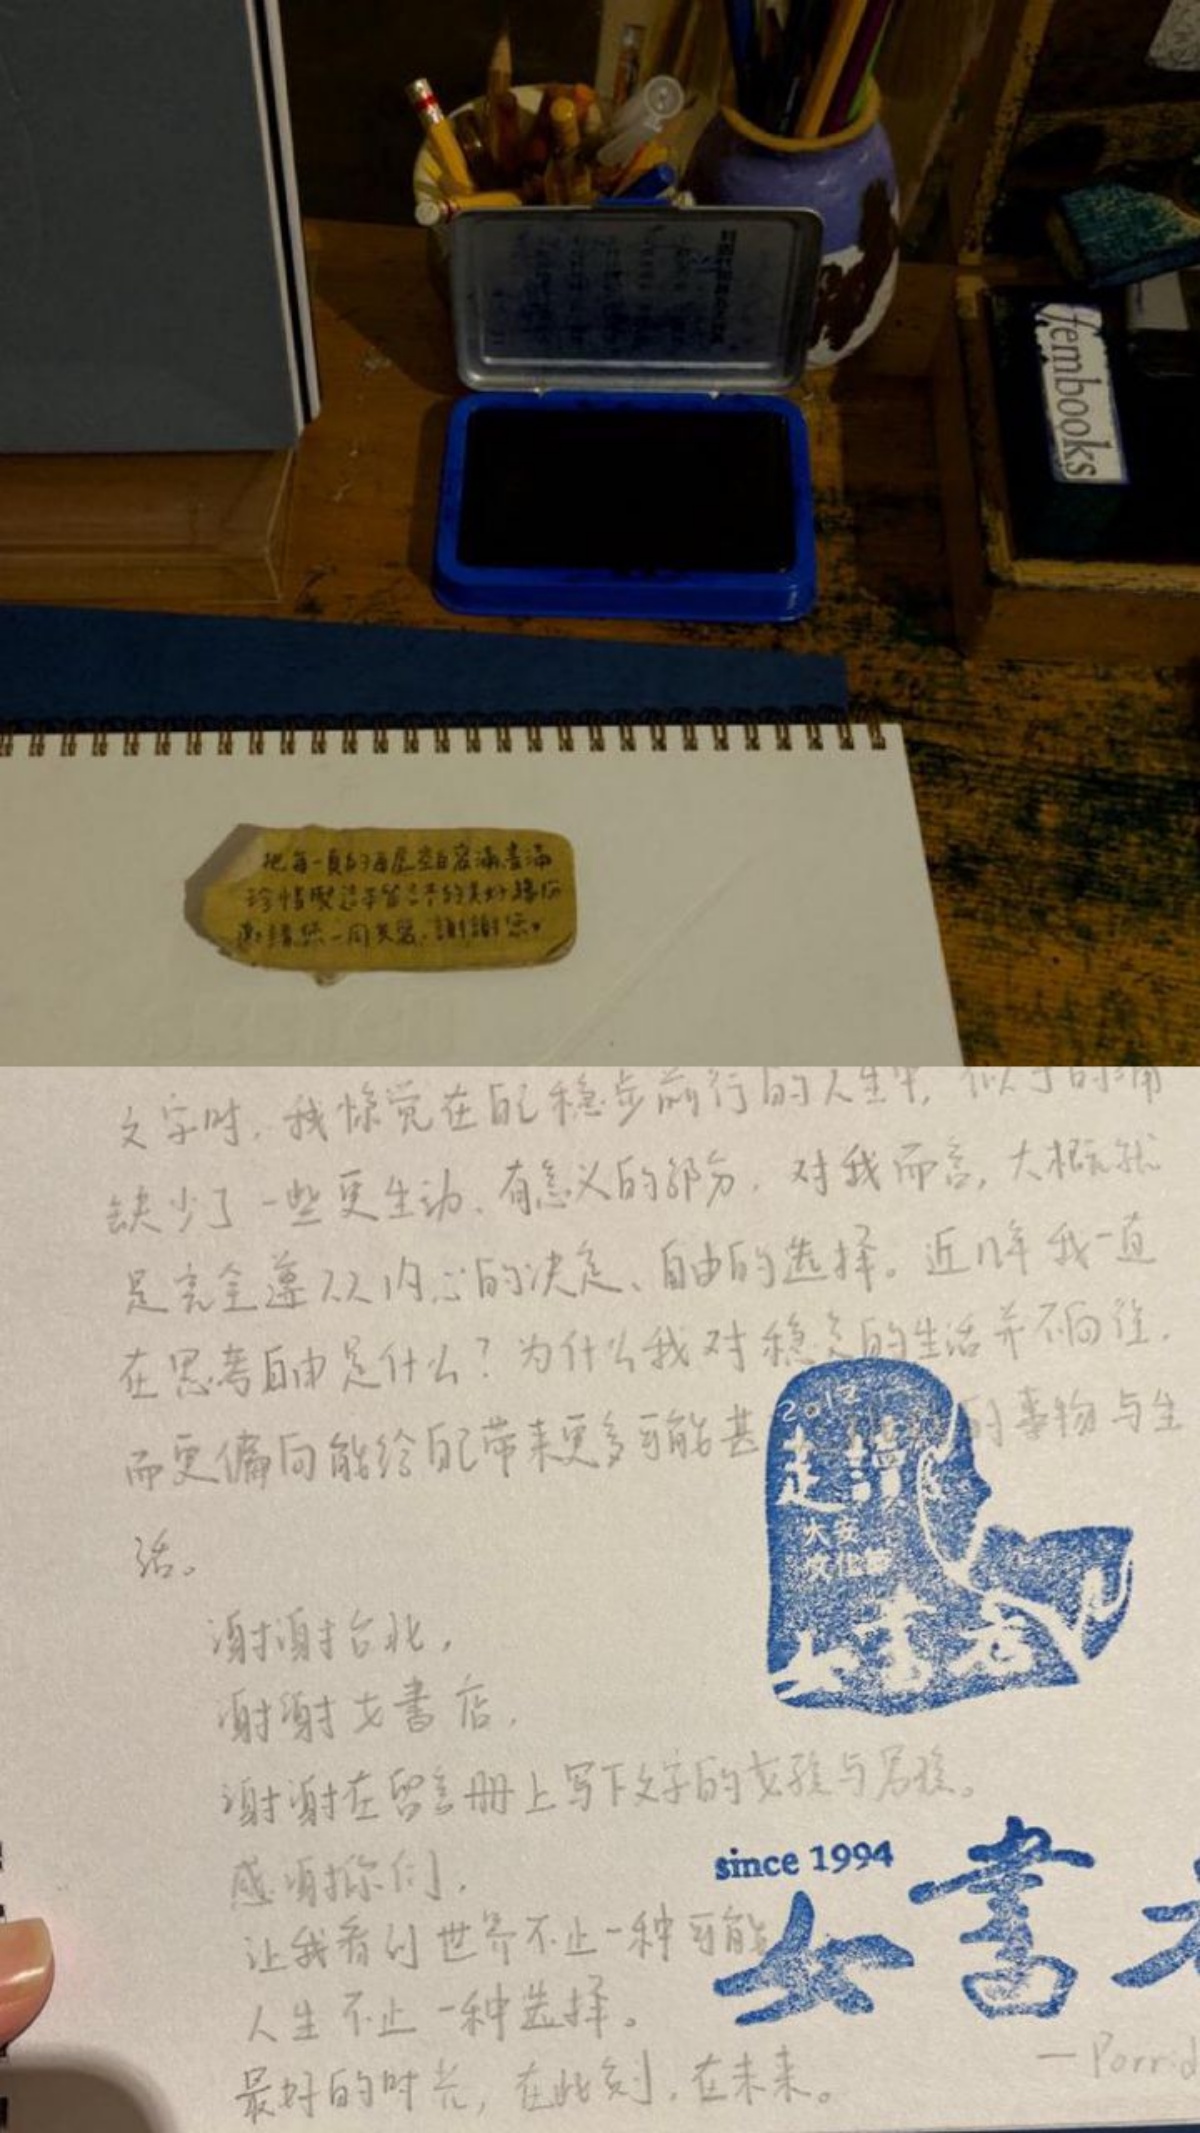 fembooks
把每一頁的每處空白寫滿畫滿
珍惜與這本留言本的美好緣份
邀請您一同共寫,謝謝您♥
文字时,我惊觉在自己稳步前行的人生中,似乎的确
缺少了一些更生动、有意义的部分。对我而言,大概就
是完全遵从内心的决定、自由的选择。近几年我一直
在思考自由是什么?为什么我对稳定的生活并不向往,
而更偏向能给自己带来更多可能甚 的事物与生
活。
2012
走讀
大安
文化節
女書店
谢谢台北,
谢谢女書店,
谢谢在留言册上写下文字的女孩与男孩。
感谢你们,
让我看到世界不止一种可能
人生不止一种选择。
最好的时光,在此刻,在未来。
since 1994
女書
—Porrid